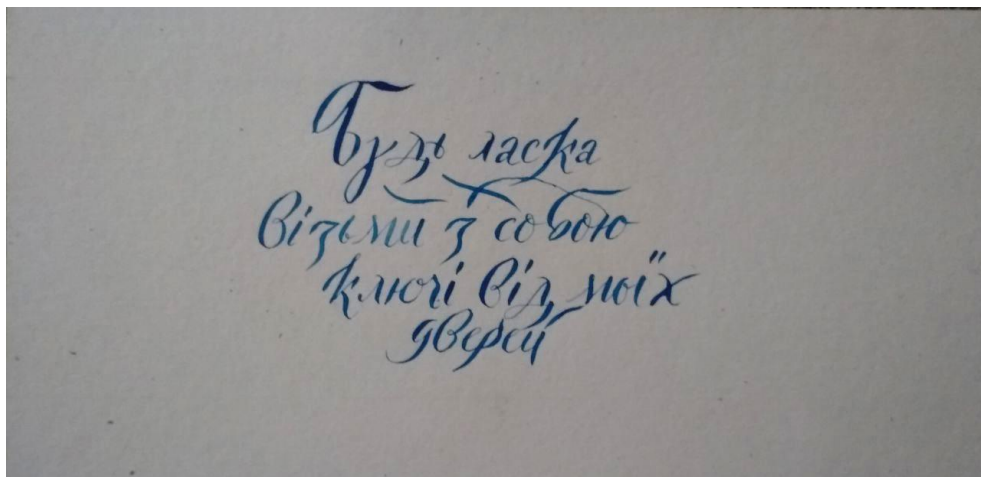 Будь ласка
візьми з собою
ключі від моїх
дверей